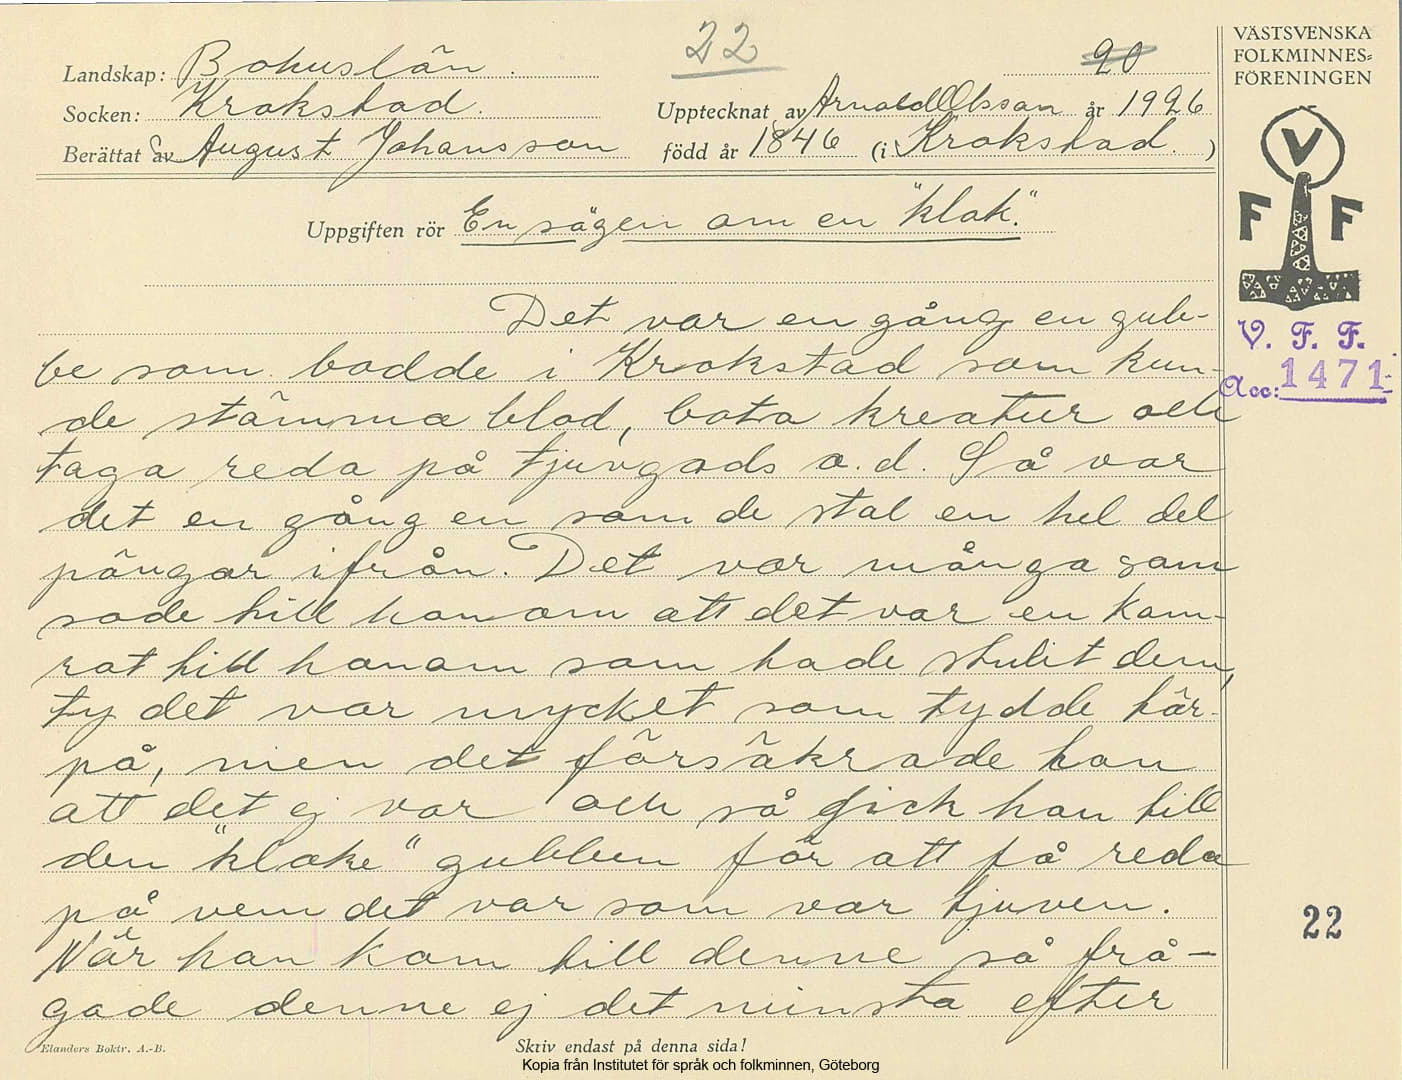 22
20
Landskap: Bohuslän.
Socken: Krokstad.
Upptecknat av Arnold Olsson år 1926
Berättat av August Johansson född år 1846 (i Krokstad.)
Uppgiften rör En sägen om en "klok".
Det var en gång en gub-
be som bodde i Krokstad som kun-
de stämma blod, bota kreatur och
taga reda på tjuvgods o.d. Så var
det en gång en som de stal en hel del
pängar ifrån. Det var många som
sade till honom att det var en kam-
rat till honom som hade stulit dem,
ty det var mycket som tydde här-
på, men det försäkrade han
att det ej var och så gick han till
den "kloke" gubben för att få reda
på vem det var som var tjuven.
När han kom till denne så frå-
gade denne ej det minsta efter
Elanders Boktr. A.-B.
Skriv endast på denna sida!
Kopia från Institutet för språk och folkminnen, Göteborg
VÄSTSVENSKA
FOLKMINNES=
FÖRENINGEN
V
F F
V. F. F.
Acc: 1471
22